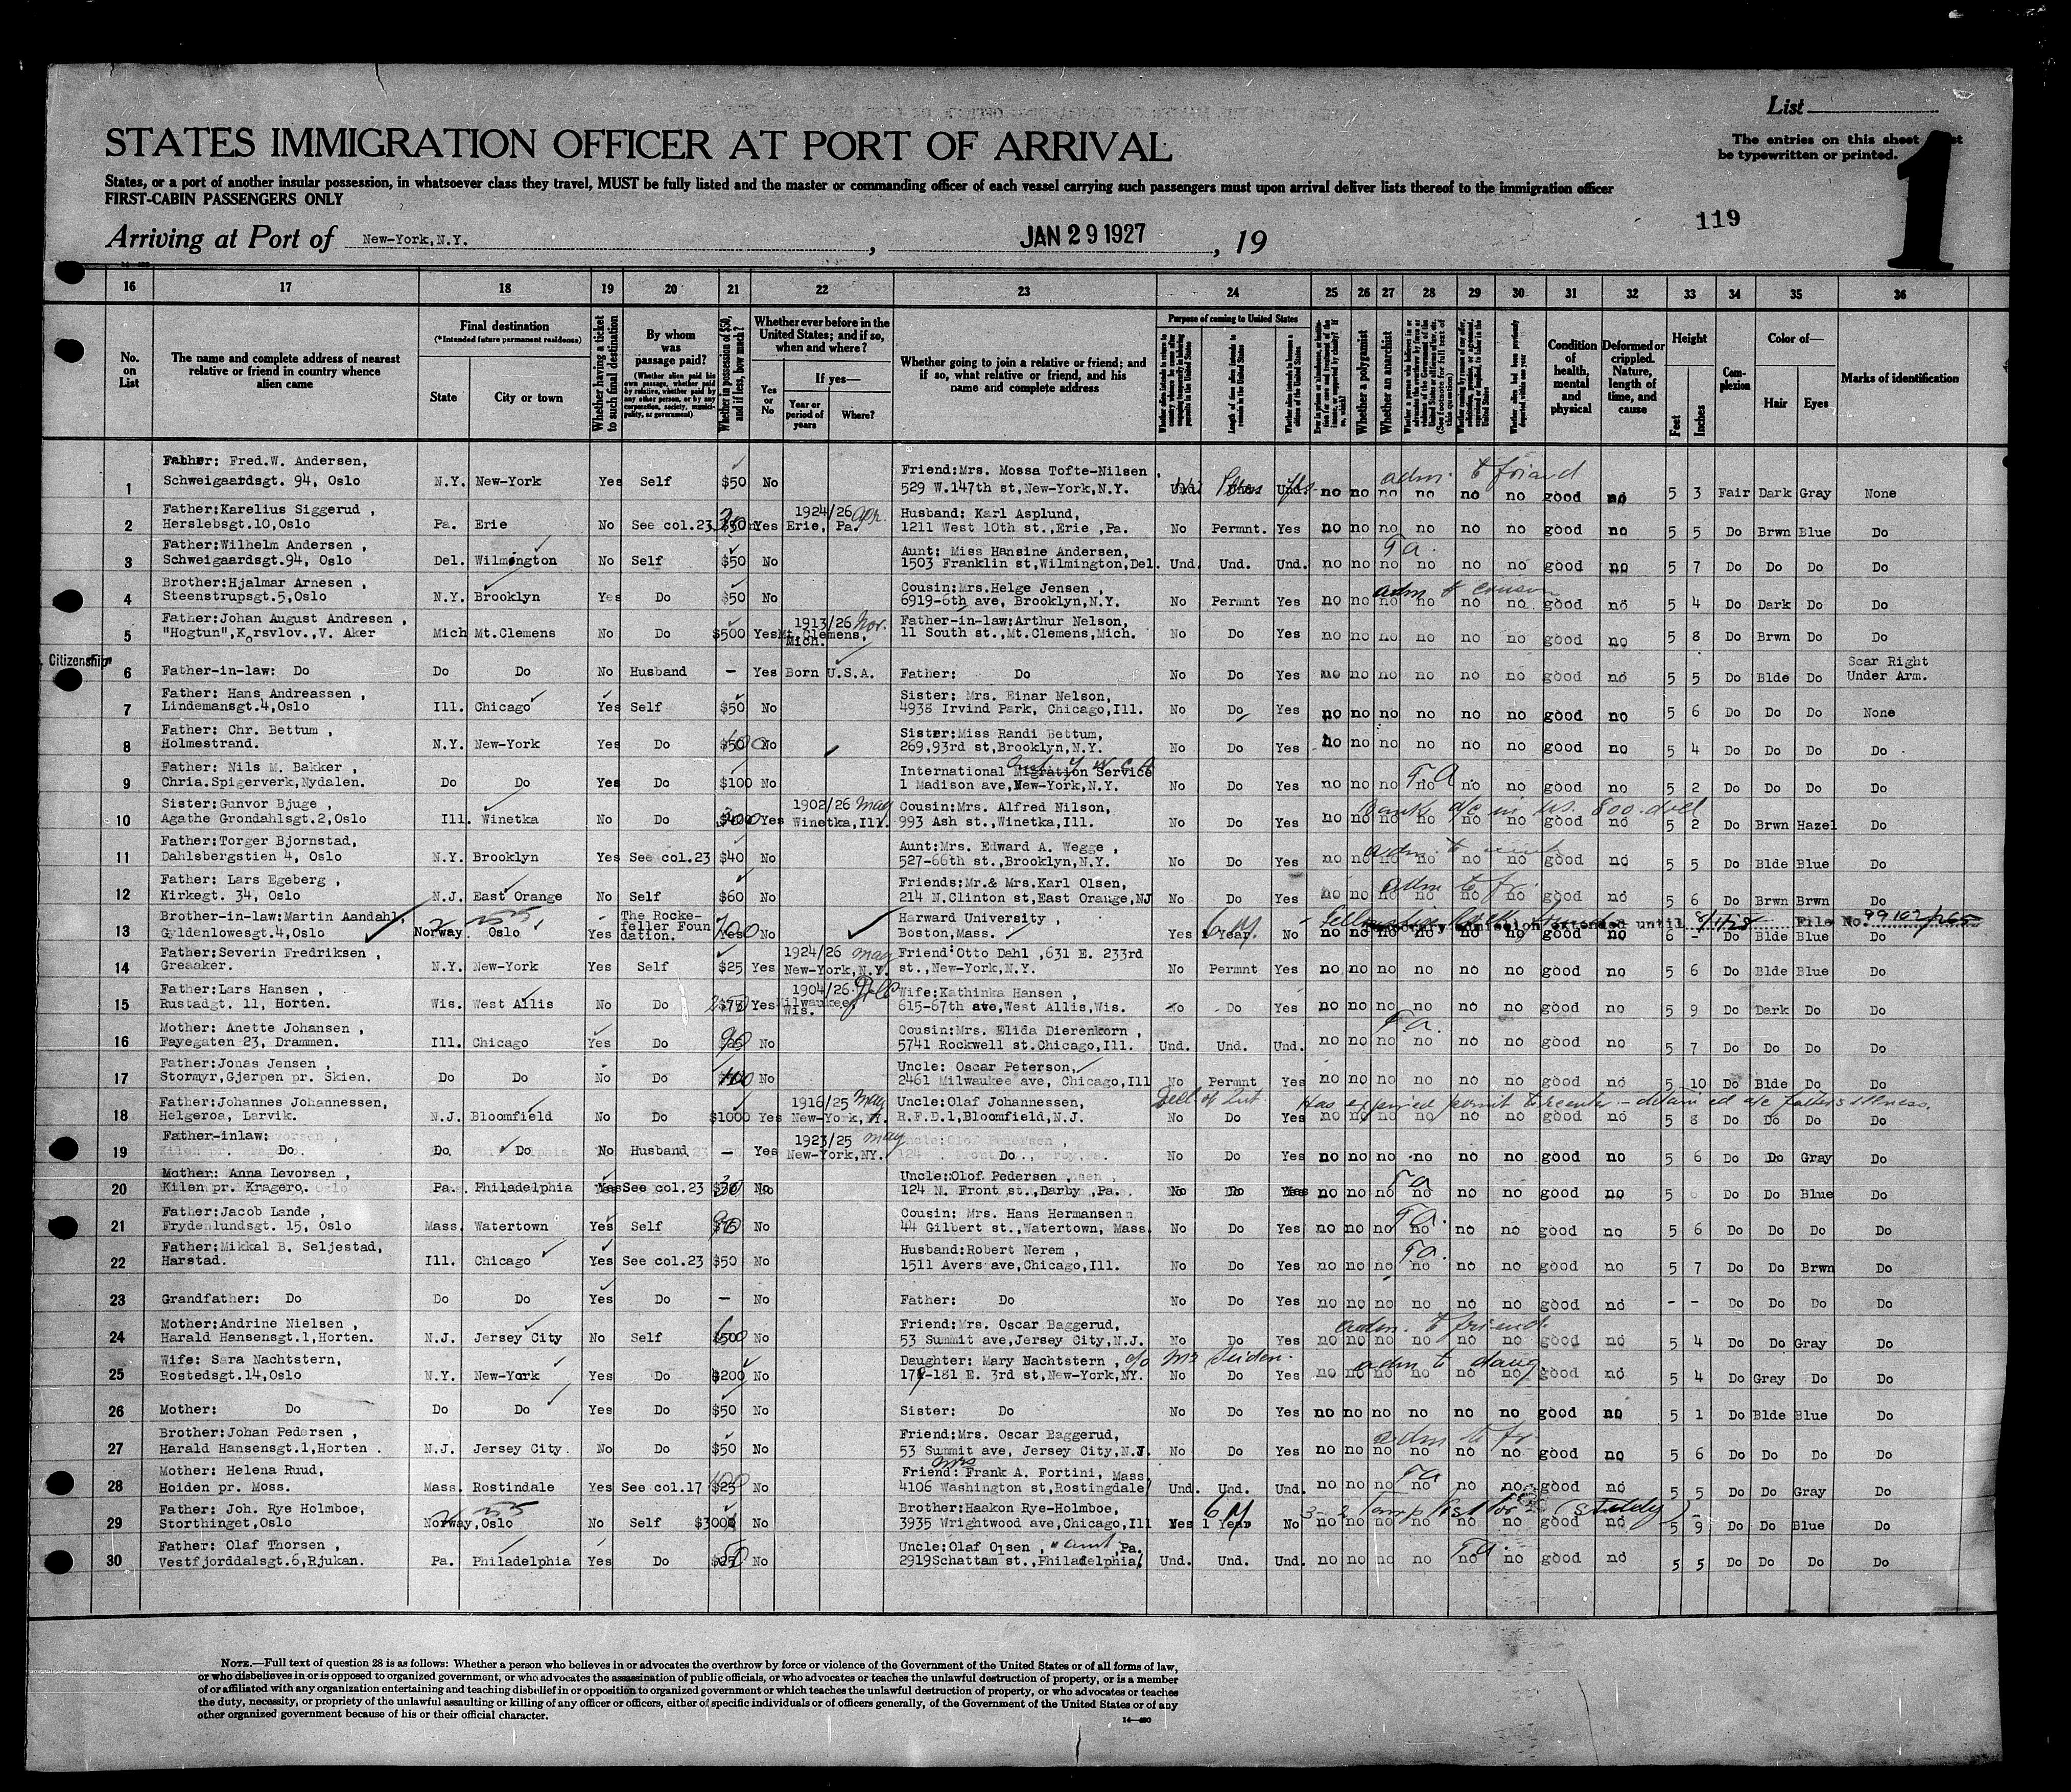 List
STATES IMMIGRATION OFFICER AT PORT OF ARRIVAL
The entries on this sheet
be typewritten or printed.
1
States, or a port of another insular possession, in whatsoever class they travel, MUST be fully listed and the master or commanding officer of each vessel carrying such passengers must upon arrival deliver lists thereof to the immigration officer
FIRST-CABIN PASSENGERS ONLY
119
Arriving at Port of New-York,N.Y. , JAN 29 1927 , 19
16 17 18 19 20 21 22 23 24 25 26 27 28 29 30 31 32 33 34 35 36
No. on List
The name and complete address of nearest relative or friend in country whence alien came
Final destination
(*Intended future permanent residence)
State City or town
Whether having a ticket to such final destination
By whom was passage paid?
(Whether alien paid his own passage, whether paid by relative, whether paid by any other person, or by any corporation, society, municipality, or government)
Whether in possession of $50, and if less, how much?
Whether ever before in the United States; and if so, when and where?
Yes or No
If yes—
Year or period of years Where?
Whether going to join a relative or friend; and if so, what relative or friend, and his name and complete address
Purpose of coming to United States
Whether a polygamist
Whether an anarchist
Condition of health, mental and physical
Deformed or crippled. Nature, length of time, and cause
Height
Feet Inches
Complexion
Color of—
Hair Eyes
Marks of identification
Father: Fred.W. Andersen, Friend:Mrs. Mossa Tofte-Nilsen adm. to friend
1 Schweigaardsgt. 94, Oslo N.Y. New-York Yes Self $50 No 529 W.147th st,New-York,N.Y. Und. no no no no no no good no 5 3 Fair Dark Gray None
Father:Karelius Siggerud , 1924/26 Husband: Karl Asplund,
2 Herslebsgt.10,Oslo Pa. Erie No See col.23 $50 Yes Erie, Pa. 1211 West 10th st.,Erie ,Pa. No Permnt. Yes no no no no no no good no 5 5 Do Brwn Blue Do
Father:Wilhelm Andersen , Aunt: Miss Hansine Andersen,
3 Schweigaardsgt.94, Oslo Del. Wilmington No Self $50 No 1503 Franklin st,Wilmington,Del. Und. Und. Und. no no no no no no good no 5 7 Do Do Do Do
Brother:Hjalmar Arnesen , Cousin:Mrs.Helge Jensen , adm to cousin
4 Steenstrupsgt.5,Oslo N.Y. Brooklyn Yes Do $50 No 6919-6th ave, Brooklyn,N.Y. No Permnt Yes no no no no no no good no 5 4 Do Dark Do Do
Father:Johan August Andresen , 1913/26 Nov. Father-in-law:Arthur Nelson,
5 "Hogtun",Korsvlov.,V. Aker Mich Mt.Clemens No Do $500 Yes Mt.Clemens, Mich. 11 South st.,Mt.Clemens,Mich. No Do Yes no no no no no no good no 5 8 Do Brwn Do Do
Citizenship
6 Father-in-law: Do Do Do No Husband — Yes Born U.S.A. Father: Do No Do Yes no no no no no no good no 5 5 Do Blde Do Scar Right Under Arm.
Father: Hans Andreassen , Sister: Mrs. Einar Nelson,
7 Lindemansgt.4,Oslo Ill. Chicago Yes Self $50 No 4938 Irvind Park, Chicago,Ill. No Do Yes no no no no no no good no 5 6 Do Do Do None
Father: Chr. Bettum , Sister:Miss Randi Bettum,
8 Holmestrand. N.Y. New-York Yes Do $50 No 269,93rd st,Brooklyn,N.Y. No Do Yes no no no no no no good no 5 4 Do Do Do Do
Father: Nils M. Bakker , International Migration Service
9 Chria.Spigerverk,Nydalen. Do Do Yes Do $100 No 1 Madison ave,New-York,N.Y. No Do Yes no no no no no no good no 5 2 Do Do Do Do
Sister:Gunvor Bjuge , 1902/26 May Cousin:Mrs. Alfred Nilson,
10 Agathe Grondahlsgt.2,Oslo Ill. Winetka No Do Yes Winetka,Ill. 993 Ash st.,Winetka,Ill. No Do Yes no no no no no no good no 5 2 Do Brwn Hazel Do
Father:Torger Bjornstad, Aunt:Mrs. Edward A. Wegge ,
11 Dahlsbergstien 4, Oslo N.Y. Brooklyn Yes See col.23 $40 No 527-66th st.,Brooklyn,N.Y. No Do Yes no no no no no no good no 5 5 Do Blde Blue Do
Father: Lars Egeberg , Friends:Mr.& Mrs.Karl Olsen, adm to fr.
12 Kirkegt. 34, Oslo N.J. East Orange No Self $60 No 214 N.Clinton st,East Orange,NJ No Do Yes no no no no no no good no 5 6 Do Brwn Brwn Do
Brother-in-law:Martin Aandahl, The Rockefeller Foundation. Harward University , admission extended until File No.
13 Gyldenlowesgt.4,Oslo Norway Oslo Yes Yes No Boston,Mass. Yes 1 Year No no no no no no no good no 6 - Do Blde Blue Do
Father:Severin Fredriksen , 1924/26 May Friend:Otto Dahl ,631 E. 233rd
14 Greaaker. N.Y. New-York Yes Self $25 Yes New-York,N.Y. st.,New-York,N.Y. No Permnt Yes no no no no no no good no 5 6 Do Blde Blue Do
Father:Lars Hansen , 1904/26 Wife:Kathinka Hansen ,
15 Rustadgt. 11, Horten. Wis. West Allis No Do Yes Milwaukee, Wis. 615-67th ave,West Allis,Wis. No Do Yes no no no no no no good no 5 9 Do Dark Do Do
Mother: Anette Johansen , Cousin:Mrs. Elida Dierenkorn ,
16 Fayegaten 23, Drammen. Ill. Chicago Yes Do No 5741 Rockwell st.Chicago,Ill. Und. Und. Und. no no no no no no good no 5 7 Do Do Do Do
Father:Jonas Jensen , Uncle: Oscar Peterson,
17 Stormyr,Gjerpen pr. Skien. Do Do No Do No 2461 Milwaukee ave, Chicago,Ill No Permnt Yes no no no no no no good no 5 10 Do Blde Do Do
Father:Johannes Johannessen, 1916/25 May Uncle:Olaf Johannessen, Has expired permit to reenter - detained a/c fathers illness.
18 Helgeroa, Larvik. N.J. Bloomfield No Do $1000 Yes New-York, R.F.D.1,Bloomfield,N.J. No Do Yes no no no no no no good no 5 8 Do Do Do Do
Father-inlaw: 1923/25 May
19 Do. Do. Do No Husband — Yes New-York,NY. Do No Do Yes no no no no no no good no 5 6 Do Do Gray Do
Mother: Anna Levorsen , Uncle:Olof. Pedersen ,
20 Kilen pr. Kragero. Pa. Philadelphia Yes See col.23 No 124 N. Front st.,Darby ,Pa. No Do Yes no no no no no no good no 5 Do Do Blue Do
Father:Jacob Lande , Cousin: Mrs. Hans Hermansen
21 Frydenlundsgt. 15, Oslo Mass. Watertown Yes Self No 44 Gilbert st.,Watertown, Mass. No Do Yes no no no no no no good no 5 6 Do Do Do Do
Father:Mikkal B. Seljestad, Husband:Robert Nerem ,
22 Harstad. Ill. Chicago Yes See col.23 $50 No 1511 Avers ave,Chicago,Ill. No Do Yes no no no no no no good no 5 7 Do Do Brwn Do
23 Grandfather: Do Do Do Yes Do — No Father: Do No Do Yes no no no no no no good no - - Do Do Do Do
Mother:Andrine Nielsen , Friend:Mrs. Oscar Baggerud, adm. to friend
24 Harald Hansensgt.1,Horten. N.J. Jersey City No Self No 53 Summit ave,Jersey City,N.J. No Do Yes no no no no no no good no 5 4 Do Do Gray Do
Wife: Sara Nachtstern, Daughter: Mary Nachtstern , c/o adm to daug
25 Rostedsgt.14,Oslo N.Y. New-York Yes Do $200 No 179-181 E. 3rd st,New-York,NY. No Do Yes no no no no no no good no 5 4 Do Gray Do Do
26 Mother: Do Do Do Yes Do $50 No Sister: Do No Do Yes no no no no no no good no 5 1 Do Blde Blue Do
Brother:Johan Pedersen , Friend:Mrs. Oscar Baggerud, adm to fr
27 Harald Hansensgt.1,Horten . N.J. Jersey City. No Do $50 No 53 Summit ave, Jersey City,N.J. No Do Yes no no no no no no good no 5 6 Do Do Do Do
Mother: Helena Ruud, Friend: Mrs Frank A. Fortini, Mass
28 Hoiden pr. Moss. Mass. Rostindale Yes See col.17 No 4106 Washington st,Rostingdale Und. Und. Und. no no no no no no good no 5 5 Do Do Gray Do
Father: Joh. Rye Holmboe, Brother:Haakon Rye-Holmboe, (study)
29 Storthinget,Oslo Norway,Oslo No Self $3000 No 3935 Wrightwood ave,Chicago,Ill Yes 1 Year No no no no no no no good no 5 9 Do Do Blue Do
Father: Olaf Thorsen , Uncle:Olaf Olsen , "aunt Pa.
30 Vestfjorddalsgt.6,Rjukan. Pa. Philadelphia Yes Do No 2919Schattam st.,Philadelphia, Und. Und. Und. no no no no no no good no 5 5 Do Do Do Do
NOTE.—Full text of question 28 is as follows: Whether a person who believes in or advocates the overthrow by force or violence of the Government of the United States or of all forms of law,
or who disbelieves in or is opposed to organized government, or who advocates the assassination of public officials, or who advocates or teaches the unlawful destruction of property, or is a member
of or affiliated with any organization entertaining and teaching disbelief in or opposition to organized government or which teaches the unlawful destruction of property, or who advocates or teaches
the duty, necessity, or propriety of the unlawful assaulting or killing of any officer or officers, either of specific individuals or of officers generally, of the Government of the United States or of any
other organized government because of his or their official character.
14—480